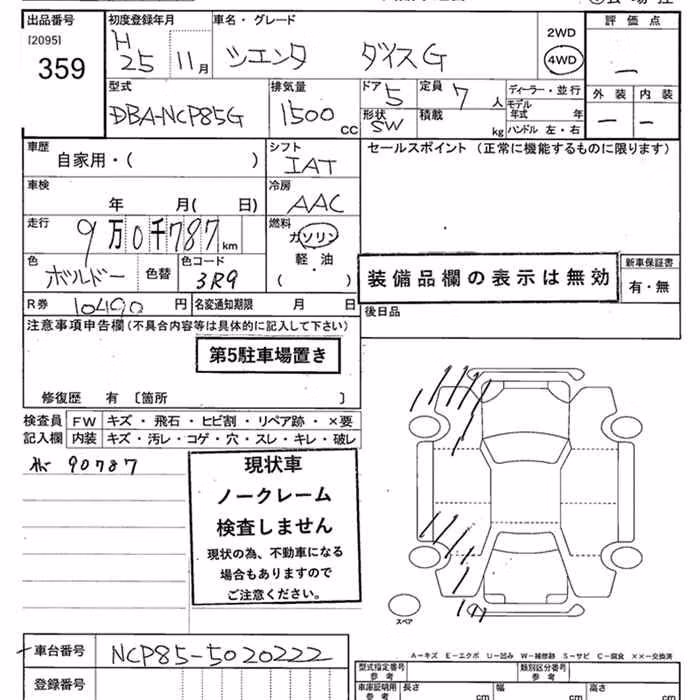 出品番号 初度登録年月 車名・グレード 2WD 評価点
[2095] H
359 25 11月 シエンタ ダイスG 4WD 一
型式 排気量 ドア 定員 ディーラー・並行 外装 内装
DBA-NCP85G 1500cc 5 7人 モデル年式 年 一 一
形状 SW 積載 kg ハンドル 左・右
車歴 シフト セールスポイント (正常に機能するものに限ります)
自家用・( ) IAT
車検 冷房
年 月( 日) AAC
走行 燃料
9万0千787km ガソリン
色 色コード 軽・油
ボルドー 色替 3R9 ( ) 装備品欄の表示は無効 新車保証書
有・無
R券 10490円 名変通知期限 月 日 後日品
注意事項申告欄(不具合内容等は具体的に記入して下さい)
第5駐車場置き
修復歴 有 〔箇所 〕
検査員 FW キズ・飛石・ヒビ割・リペア跡・×要
記入欄 内装 キズ・汚レ・コゲ・穴・スレ・キレ・破レ
90787 現状車
ノークレーム
検査しません
現状の為、不動車になる
場合もありますので
ご注意ください。
スペア
A-キズ E-エクボ U-凹み W-補修跡 S-サビ C-腐食 ××-交換済
車台番号 NCP85-5020222 型式指定番号 参考 類別区分番号 参考
登録番号 車庫証明用 参考 長さ cm 幅 cm 高さ cm